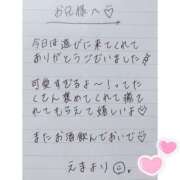 お兄様へ♡
今日は遊びに来てくれて
ありがとうございました
可愛すぎるよ～！ってた
くさん褒めてくれて撫で
れてもらえて嬉しいよ♡
またお酒飲んでおいで♡
えまより